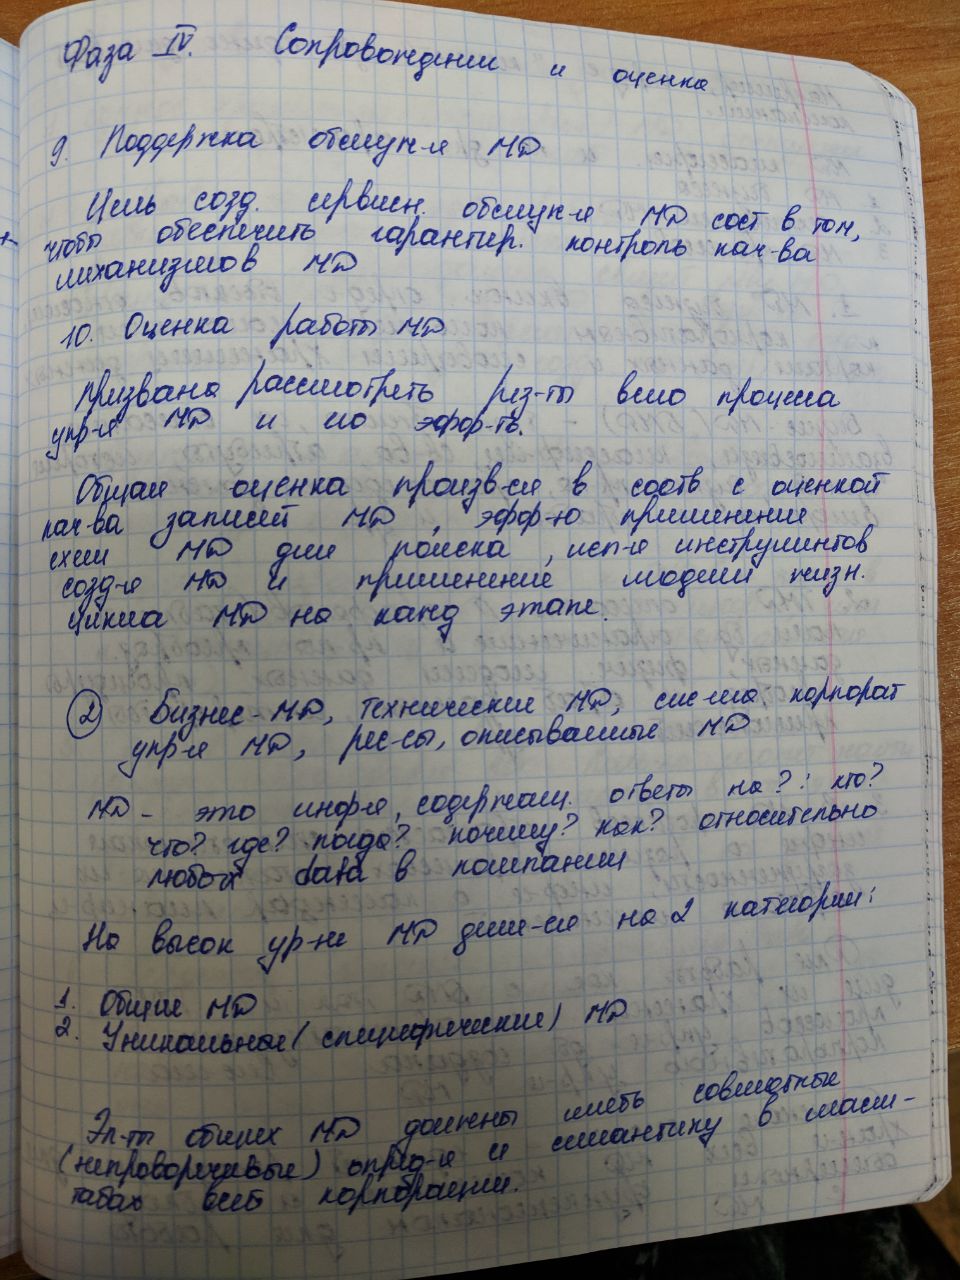 Фаза IV. Сопровождение и оценка
9. Поддержка обслуж-я МД
Цель созд. сервисн. обслуж-я МД сост в том,
чтобы обеспечить гарантир. контроль кач-ва
механизмов МД
10. Оценка работы МД
Призвана рассмотреть рез-ты всего процесса
упр-я МД и его эффр-ть.
Общая оценка произв-ся в соотв с оценкой
кач-ва записей МД, эффр-ю применение
схем МД для поиска, исп-я инструментов
созд-я МД и применение модели жизн.
цикла МД на кажд этапе.
2 Бизнес-МД, технические МД, сис-ма корпорат
упр-я МД, рес-сы, описываемые МД
МД - это инф-я, содержащ. ответы на ?: кто?
что? где? когда? почему? как? относительно
любой data в компании
На высок ур-не МД делит-ся на 2 категории:
1. Общие МД
2. Уникальные (специфические) МД
Эл-ты общих МД должны иметь совместные
(непроворечивые) опред-я и семантику в масш-
табах всей корпорации.